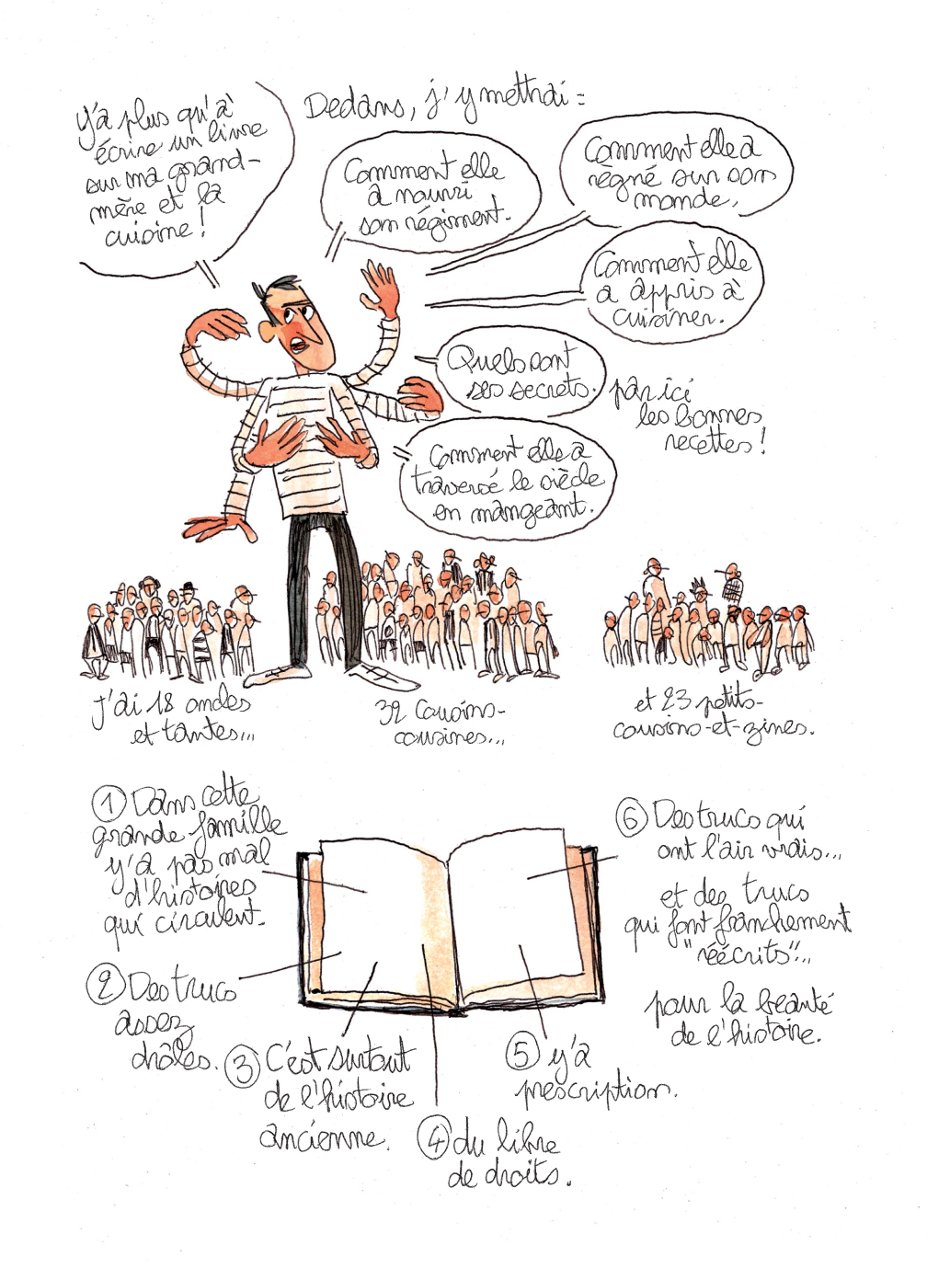 Y'a plus qu'à
écrire un livre
sur ma grand-
mère et la
cuisine !
Dedans, j'y mettrai :
Comment elle
a nourri
son régiment.
Comment elle a
règné sur son
monde.
Comment elle
a appris à
cuisiner.
Quels sont
ses secrets.
par ici
les bonnes
recettes !
Comment elle a
traversé le siècle
en mangeant.
J'ai 18 oncles
et tantes...
32 cousins-
cousines...
et 23 petits-
cousins-et-zines.
1 Dans cette
grande famille
y'a pas mal
d'histoires
qui circulent.
2 Des trucs
assez
drôles.
3 C'est surtout
de l'histoire
ancienne.
4 du libre
de droits.
5 y'a
prescription.
6 Des trucs qui
ont l'air vrais...
et des trucs
qui font franchement
"réécrits"...
pour la beauté
de l'histoire.